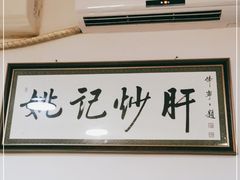 姚记炒肝